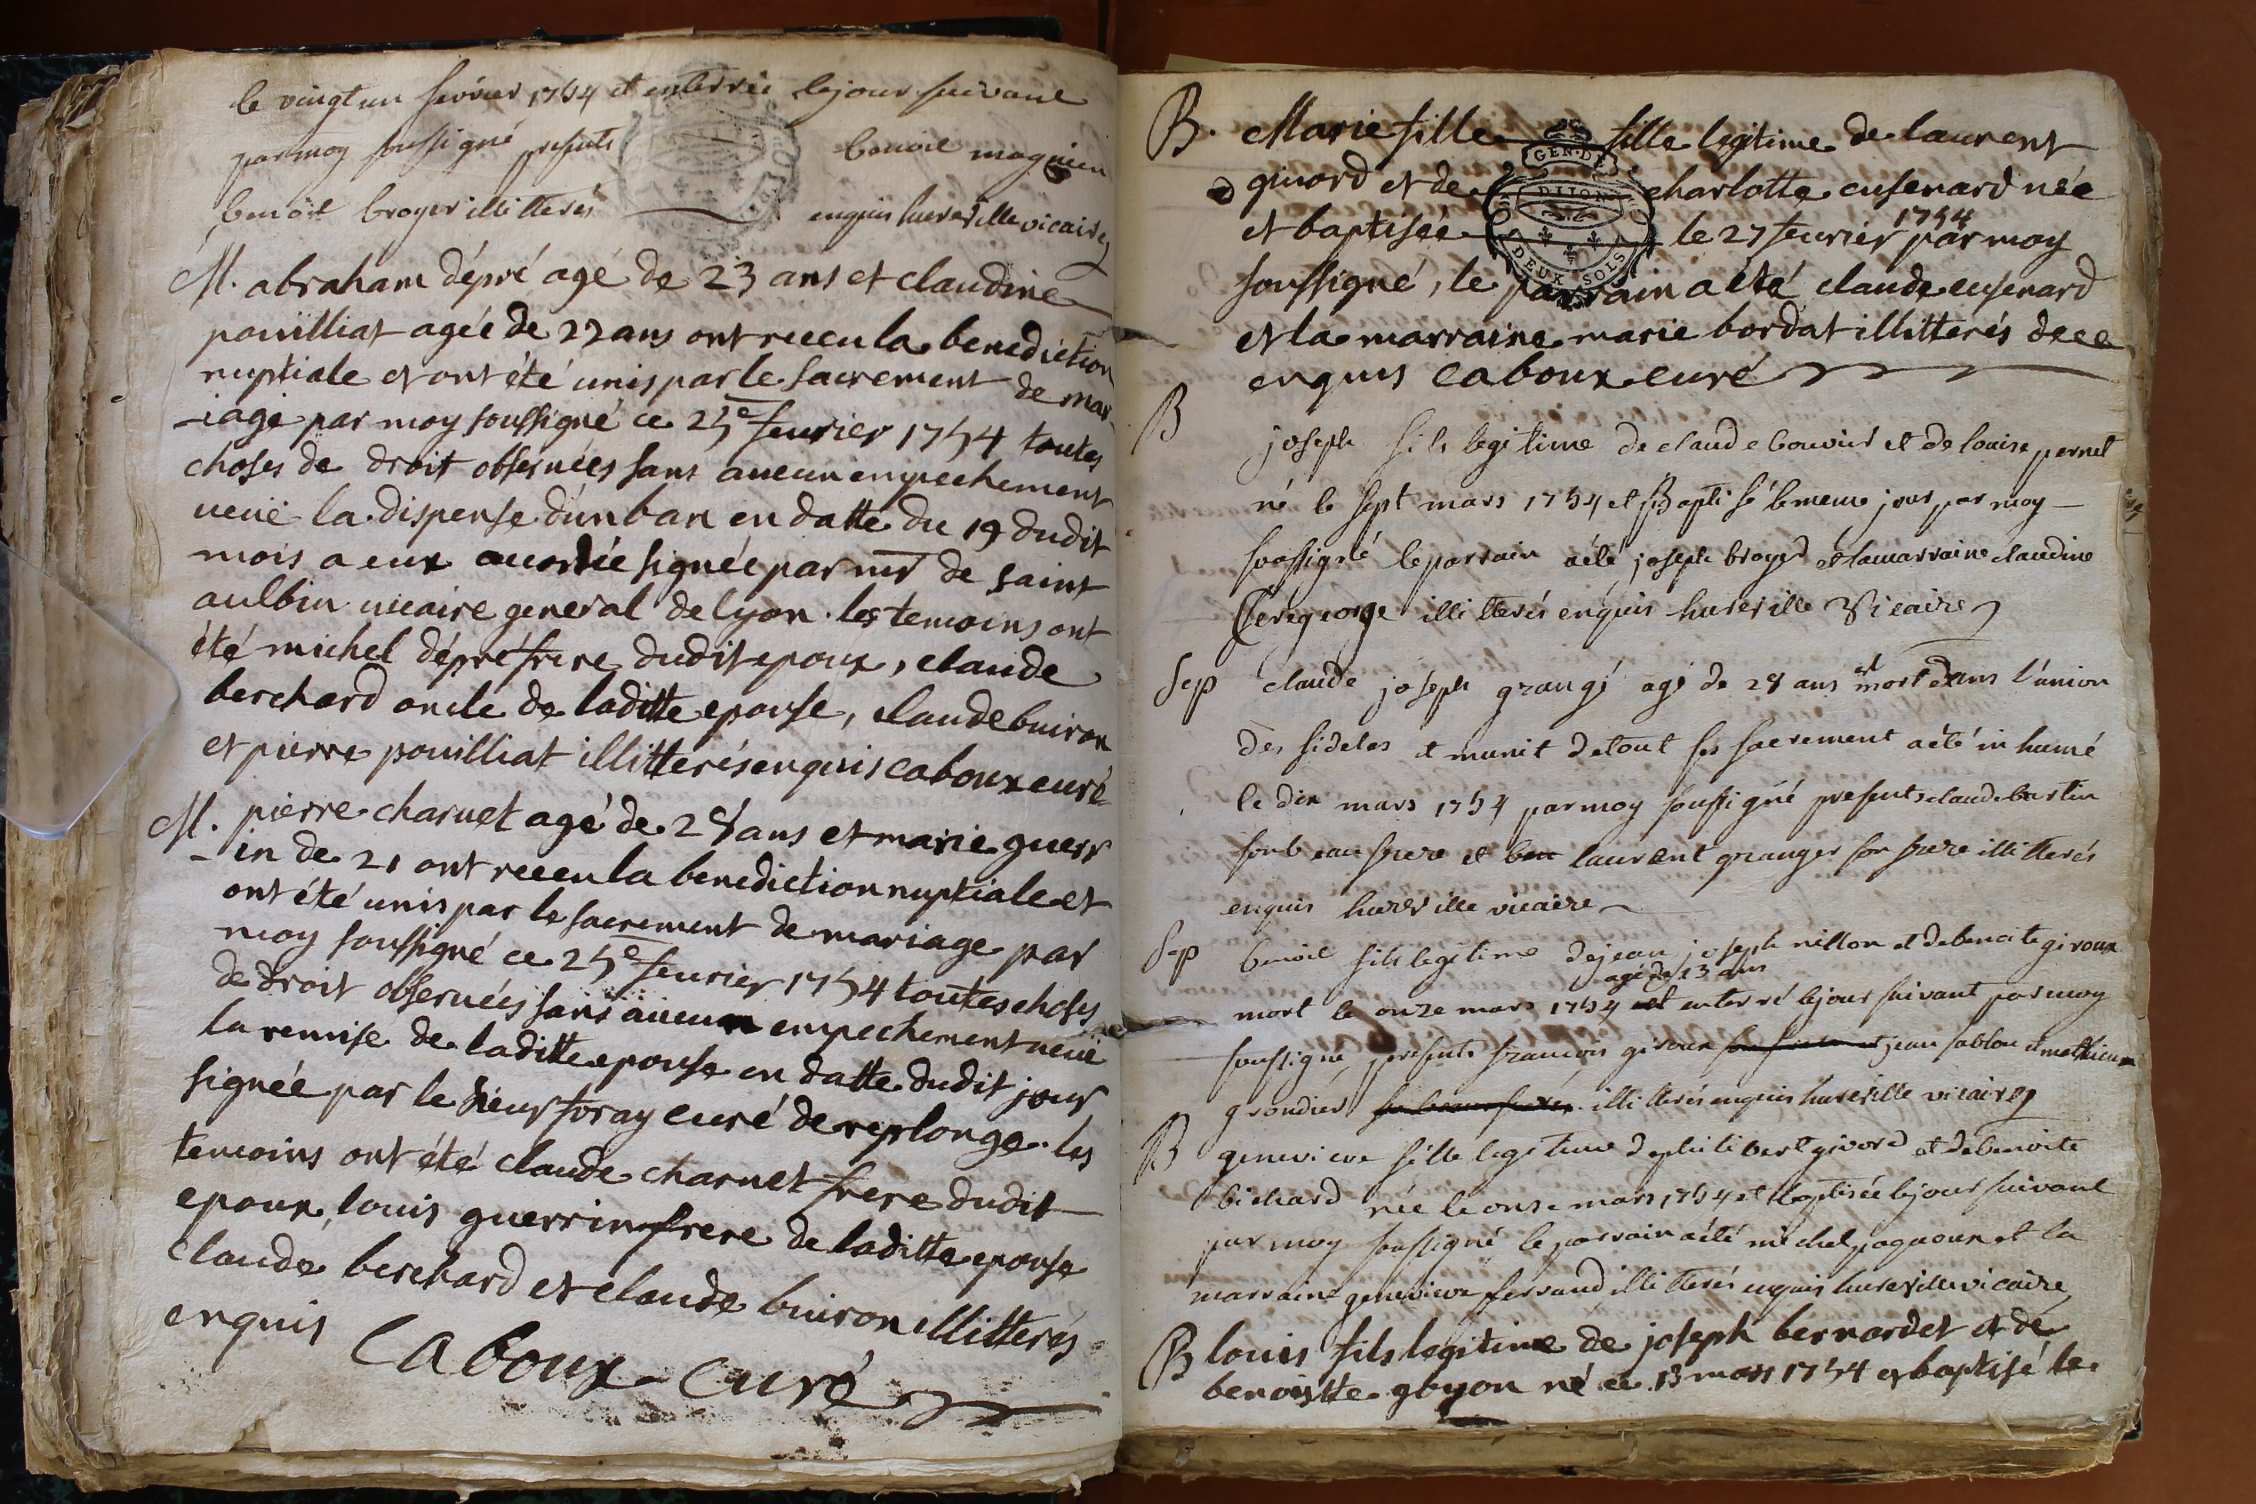 le vingt un fevrier 1754 et enterrée le jour suivant
par moy soussigné presents benoit magnien
benoit broyer illitterés enquis hureville vicaire
M. abraham dépré agé de 23 ans et claudine
pouilliat agée de 22 ans ont receu la benediction
nuptiale et ont été unis par le sacrement de mar
-iage par moy soussigné ce 25e feurier 1754 toutes
choses de droit obseruées sans aucun empechement
ueüe la dispense d'un ban en datte du 19 dudit
mois a eux accordée signée par mr de saint
aulbin uicaire general de lyon. les temoins ont
été michel dépré frere dudit epoux, claude
berchard oncle de laditte epouse, claude buiron
et pierre pouilliat illitterés enquis caboux curé
M. pierre charuet agé de 28 ans et marie guerr
-in de 21 ont receu la benediction nuptiale et
ont été unis par le sacrement de mariage par
moy soussigné ce 25e feurier 1754 toutes choses
de droit obseruées sans aucun empechement ueüe
la remise de laditte epouse en datte dudit jour
signée par le sieur foray curé de replonge. les
temoins ont été claude charuet frere dudit
epoux, louis guerrin frere de laditte epouse
claude berchard et claude buiron illitterés
enquis Caboux Curé
B. Marie fille fille legitime de laurent
giuord et de charlotte cusenard née
GEN. DE
DIJON
DEUX SOLS
1754
et baptisée le 27 feurier par moy
soussigné, le parrain a été claude cusenard
et la marraine marie bordat illitterés de ce
enquis caboux curé
B joseph fils legitime de claude bouvier et de louise pernet
né le sept mars 1754 et Baptisé le meme jour par moy
soussigné le parrain a été joseph broyer et la marraine claudine
illitterés enquis hureville Vicaire
Sep claude joseph grangé agé de 28 ans est mort dans l'union
des fideles et munit de tout ses sacrement a été inhumé
le dix mars 1754 par moy soussigné presents claude bartin
son beau frere et ben laurent granger son frere illitterés
enquis hureville vicaire
Sep benoit fils legitime de jean joseph nillon et de benoite giroux
agé de 13 ans
mort le onze mars 1754 et enterré le jour suivant par moy
soussigné, presents francois giroux son frere et jean sablon et mathieu
grondier ses beaux freres illitterés enquis hureville vicaire
B genevieve fille legitime de philibert givord et de benoite
bichard née le onze mars 1754 et baptisée le jour suivant
par moy soussigné le parrain a été michel pagnoux et la
marraine genevieve ferrand illitterés enquis hureville vicaire
B louis fils legitime de joseph bernardet et de
benoitte goyon né ce 13 mars 1754 et baptisé le